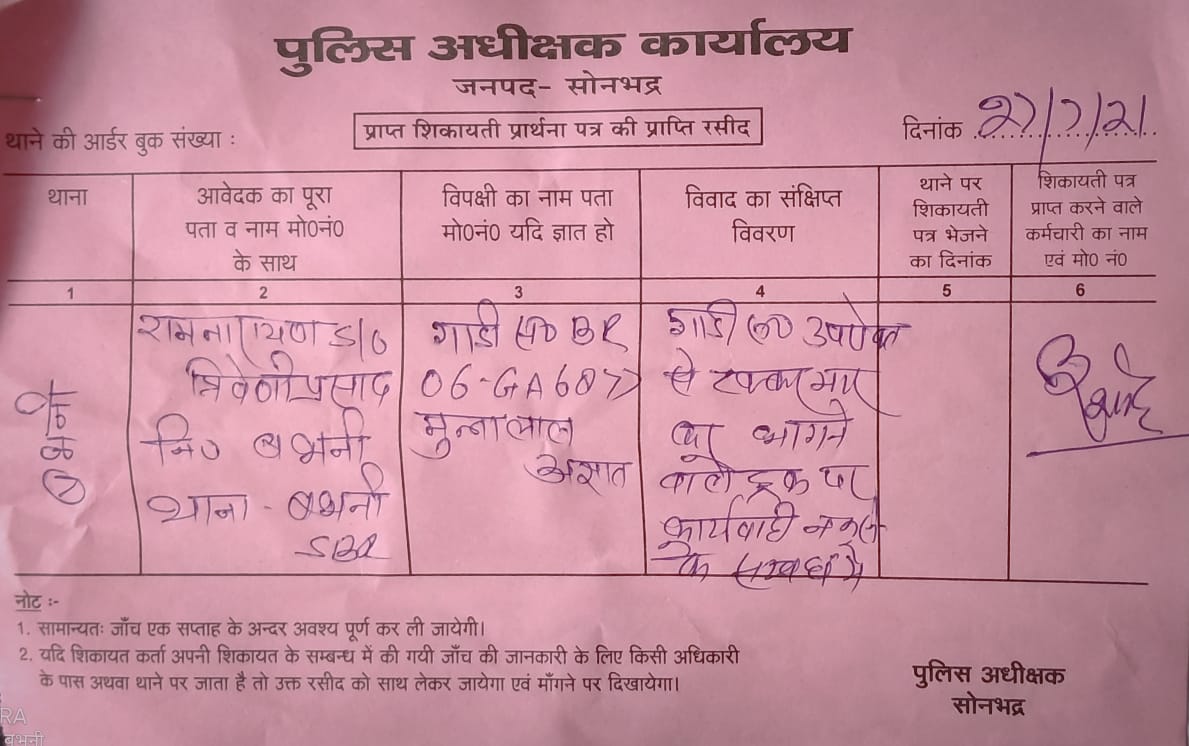 पुलिस अधीक्षक कार्यालय
जनपद- सोनभद्र
थाने की आर्डर बुक संख्या :
प्राप्त शिकायती प्रार्थना पत्र की प्राप्ति रसीद
दिनांक 27/7/21
थाना
आवेदक का पूरा
पता व नाम मो0नं0
के साथ
विपक्षी का नाम पता
मो0नं0 यदि ज्ञात हो
विवाद का संक्षिप्त
विवरण
थाने पर
शिकायती
पत्र भेजने
का दिनांक
शिकायती पत्र
प्राप्त करने वाले
कर्मचारी का नाम
एवं मो0 नं0
1 2 3 4 5 6
रामनारायण S/O
त्रिवेणीप्रसाद
नि0 बभनी
थाना - बभनी
SBR
गाडी सं0 BR
06-GA6877
मुन्नालाल
अज्ञात
गाडी सं0 उपरोक्त
से टक्कर मार
कर भागने
वाले ट्रक पर
कार्यवाही न करने
के सम्बन्ध में
नोट :-
1. सामान्यतः जाँच एक सप्ताह के अन्दर अवश्य पूर्ण कर ली जायेगी।
2. यदि शिकायत कर्ता अपनी शिकायत के सम्बन्ध में की गयी जाँच की जानकारी के लिए किसी अधिकारी
के पास अथवा थाने पर जाता है तो उक्त रसीद को साथ लेकर जायेगा एवं माँगने पर दिखायेगा।
पुलिस अधीक्षक
सोनभद्र
RA
बभनी